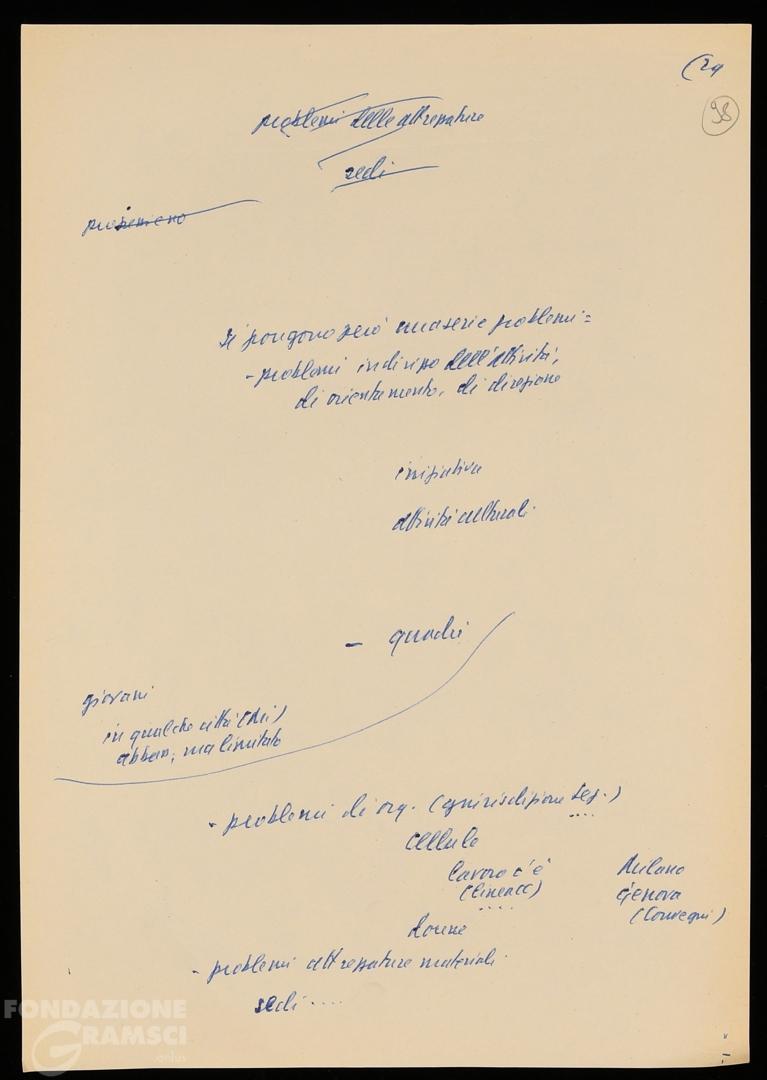 (24
98
problemi delle attrezzature
sedi
Si pongono però una serie problemi=
- problemi indirizzo dell'attività,
di orientamento, di direzione
iniziativa
attività culturali
- quadri
giovani
in qualche città (Mi)
abban, ma limitato
- problemi di org. (giurisdizione sez.)
cellule
lavoro c'è
Milano
Genova
(Convegni)
donne
- problemi attrezzature materiali
sedi ....
FONDAZIONE
GRAMSCI
onlus